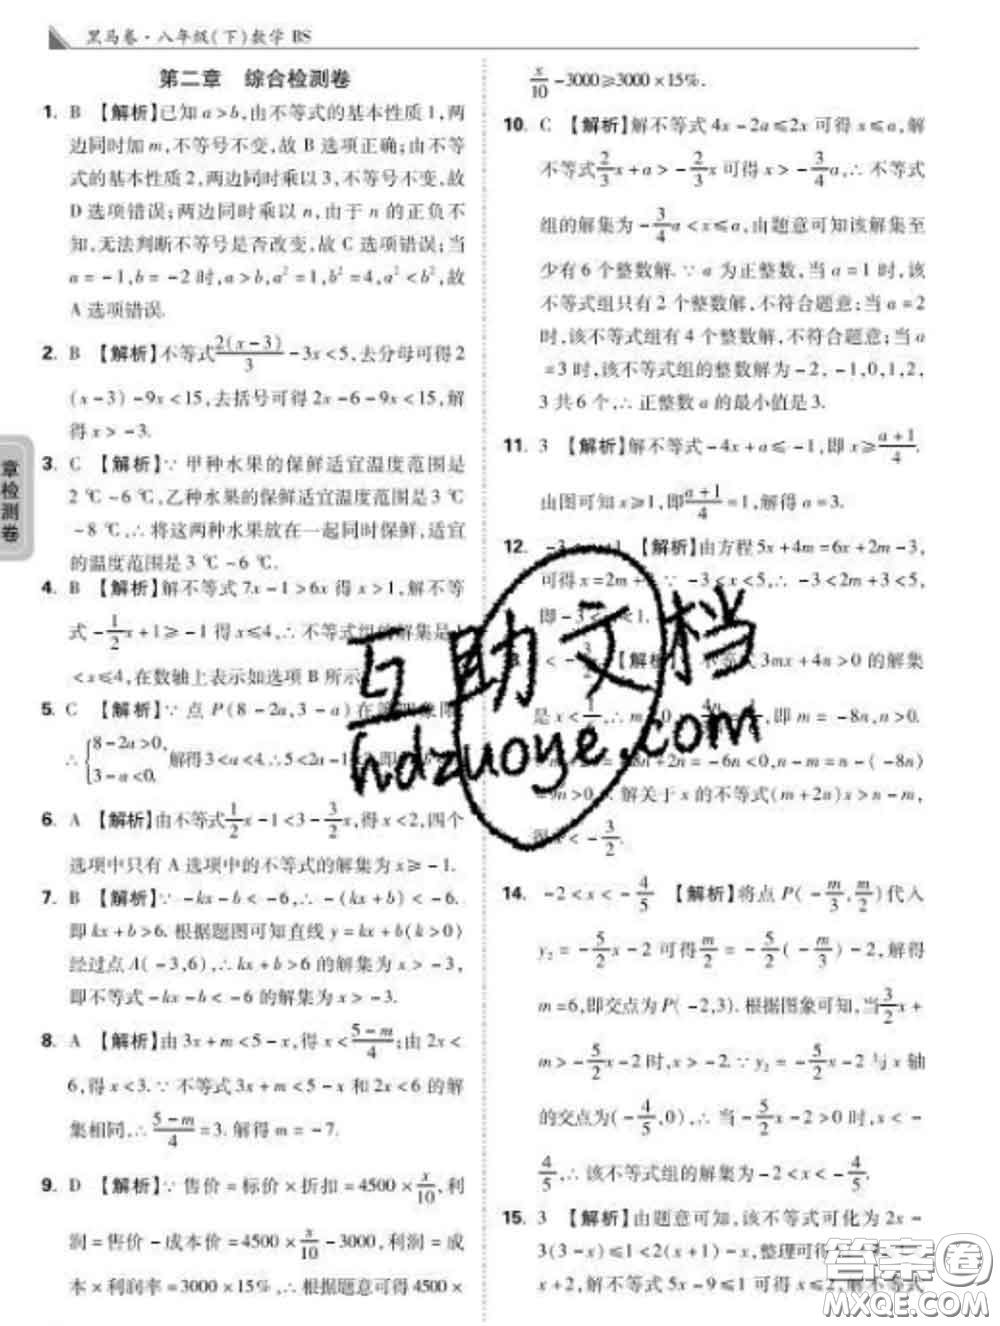 黑马卷·八年级(下)数学 BS
第二章 综合检测卷
1. B 【解析】已知 a>b,由不等式的基本性质 1,两
边同时加 m,不等号不变,故 B 选项正确;由不等
式的基本性质 2,两边同时乘以 3,不等号不变,故
D 选项错误;两边同时乘以 n,由于 n 的正负不
知,无法判断不等号是否改变,故 C 选项错误;当
a=-1,b=-2 时,a>b,a²=1,b²=4,a²<b²,故
A 选项错误.
2. B 【解析】不等式2(x-3)/3-3x<5,去分母可得 2
(x-3)-9x<15,去括号可得 2x-6-9x<15,解
得 x>-3.
3. C 【解析】∵甲种水果的保鲜适宜温度范围是
2 ℃~6 ℃,乙种水果的保鲜适宜温度范围是 3 ℃
~8 ℃,∴将这两种水果放在一起同时保鲜,适宜
的温度范围是 3 ℃~6 ℃.
4. B 【解析】解不等式 7x-1>6x 得 x>1,解不等
式-1/2x+1≥-1 得 x≤4,∴不等式组的解集是 1
<x≤4,在数轴上表示如选项 B 所示
5. C 【解析】∵点 P(8-2a,3-a)在第 象限
∴{8-2a>0, 3-a<0. 解得 3<a<4.∴5<2a-1
6. A 【解析】由不等式1/2x-1<3-3/2x,得 x<2,四个
选项中只有 A 选项中的不等式的解集为 x≥-1.
7. B 【解析】∵-kx-b<-6,∴-(kx+b)<-6.
即 kx+b>6. 根据题图可知直线 y=kx+b(k>0)
经过点 A(-3,6),∴kx+b>6 的解集为 x>-3,
即不等式-kx-b<-6 的解集为 x>-3.
8. A 【解析】由 3x+m<5-x,得 x<(5-m)/4;由 2x<
6,得 x<3.∵不等式 3x+m<5-x 和 2x<6 的解
集相同,∴(5-m)/4=3. 解得 m=-7.
9. D 【解析】∵售价=标价×折扣=4500×x/10,利
润=售价-成本价=4500×x/10-3000,利润=成
本×利润率=3000×15%,∴根据题意可得 4500×
x/10-3000≥3000×15%.
10. C 【解析】解不等式 4x-2a≤2x 可得 x≤a,解
不等式2/3x+a>-2/3x 可得 x>-3/4a,∴不等式
组的解集为-3/4a<x≤a,由题意可知该解集至
少有 6 个整数解.∵a 为正整数,当 a=1 时,该
不等式组只有 2 个整数解,不符合题意;当 a=2
时,该不等式组有 4 个整数解,不符合题意;当 a
=3 时,该不等式组的整数解为-2,-1,0,1,2,
3 共 6 个,∴正整数 a 的最小值是 3.
11. 3 【解析】解不等式-4x+a≤-1,即 x≥(a+1)/4.
由图可知 x≥1,即(a+1)/4=1,解得 a=3.
12. 【解析】由方程 5x+4m=6x+2m-3,
可得 x=2m+3.∵-3<x<5,∴-3<2m+3<5,
即-3<
【解析】 不等式 3mx+4n>0 的解集
是 x< ,即 m=-8n,n>0.
+2n=-6n<0,n-m=n-(-8n)
=9n>0.∴解关于 x 的不等式(m+2n)x>n-m,
得 x<-3/2.
14. -2<x<-4/5 【解析】将点 P(-m/3,m/2)代入
y₂=-5/2x-2 可得m/2=-5/2(-m/3)-2,解得
m=6,即交点为 P(-2,3). 根据图象可知,当3/2x+
m>-5/2x-2 时,x>-2.∵y₂=-5/2x-2 与 x 轴
的交点为(-4/5,0),∴当-5/2x-2>0 时,x<-
4/5,∴该不等式组的解集为-2<x<-4/5.
15. 3 【解析】由题意可知,该不等式可化为 2x-
3(3-x)≤1<2(1-x),整理可得
1,解不等式 5x-9≤1 可得 x≤2,解不等式
章检测卷
互助文档
hdzuoye.com
答案圈
MXQE.COM